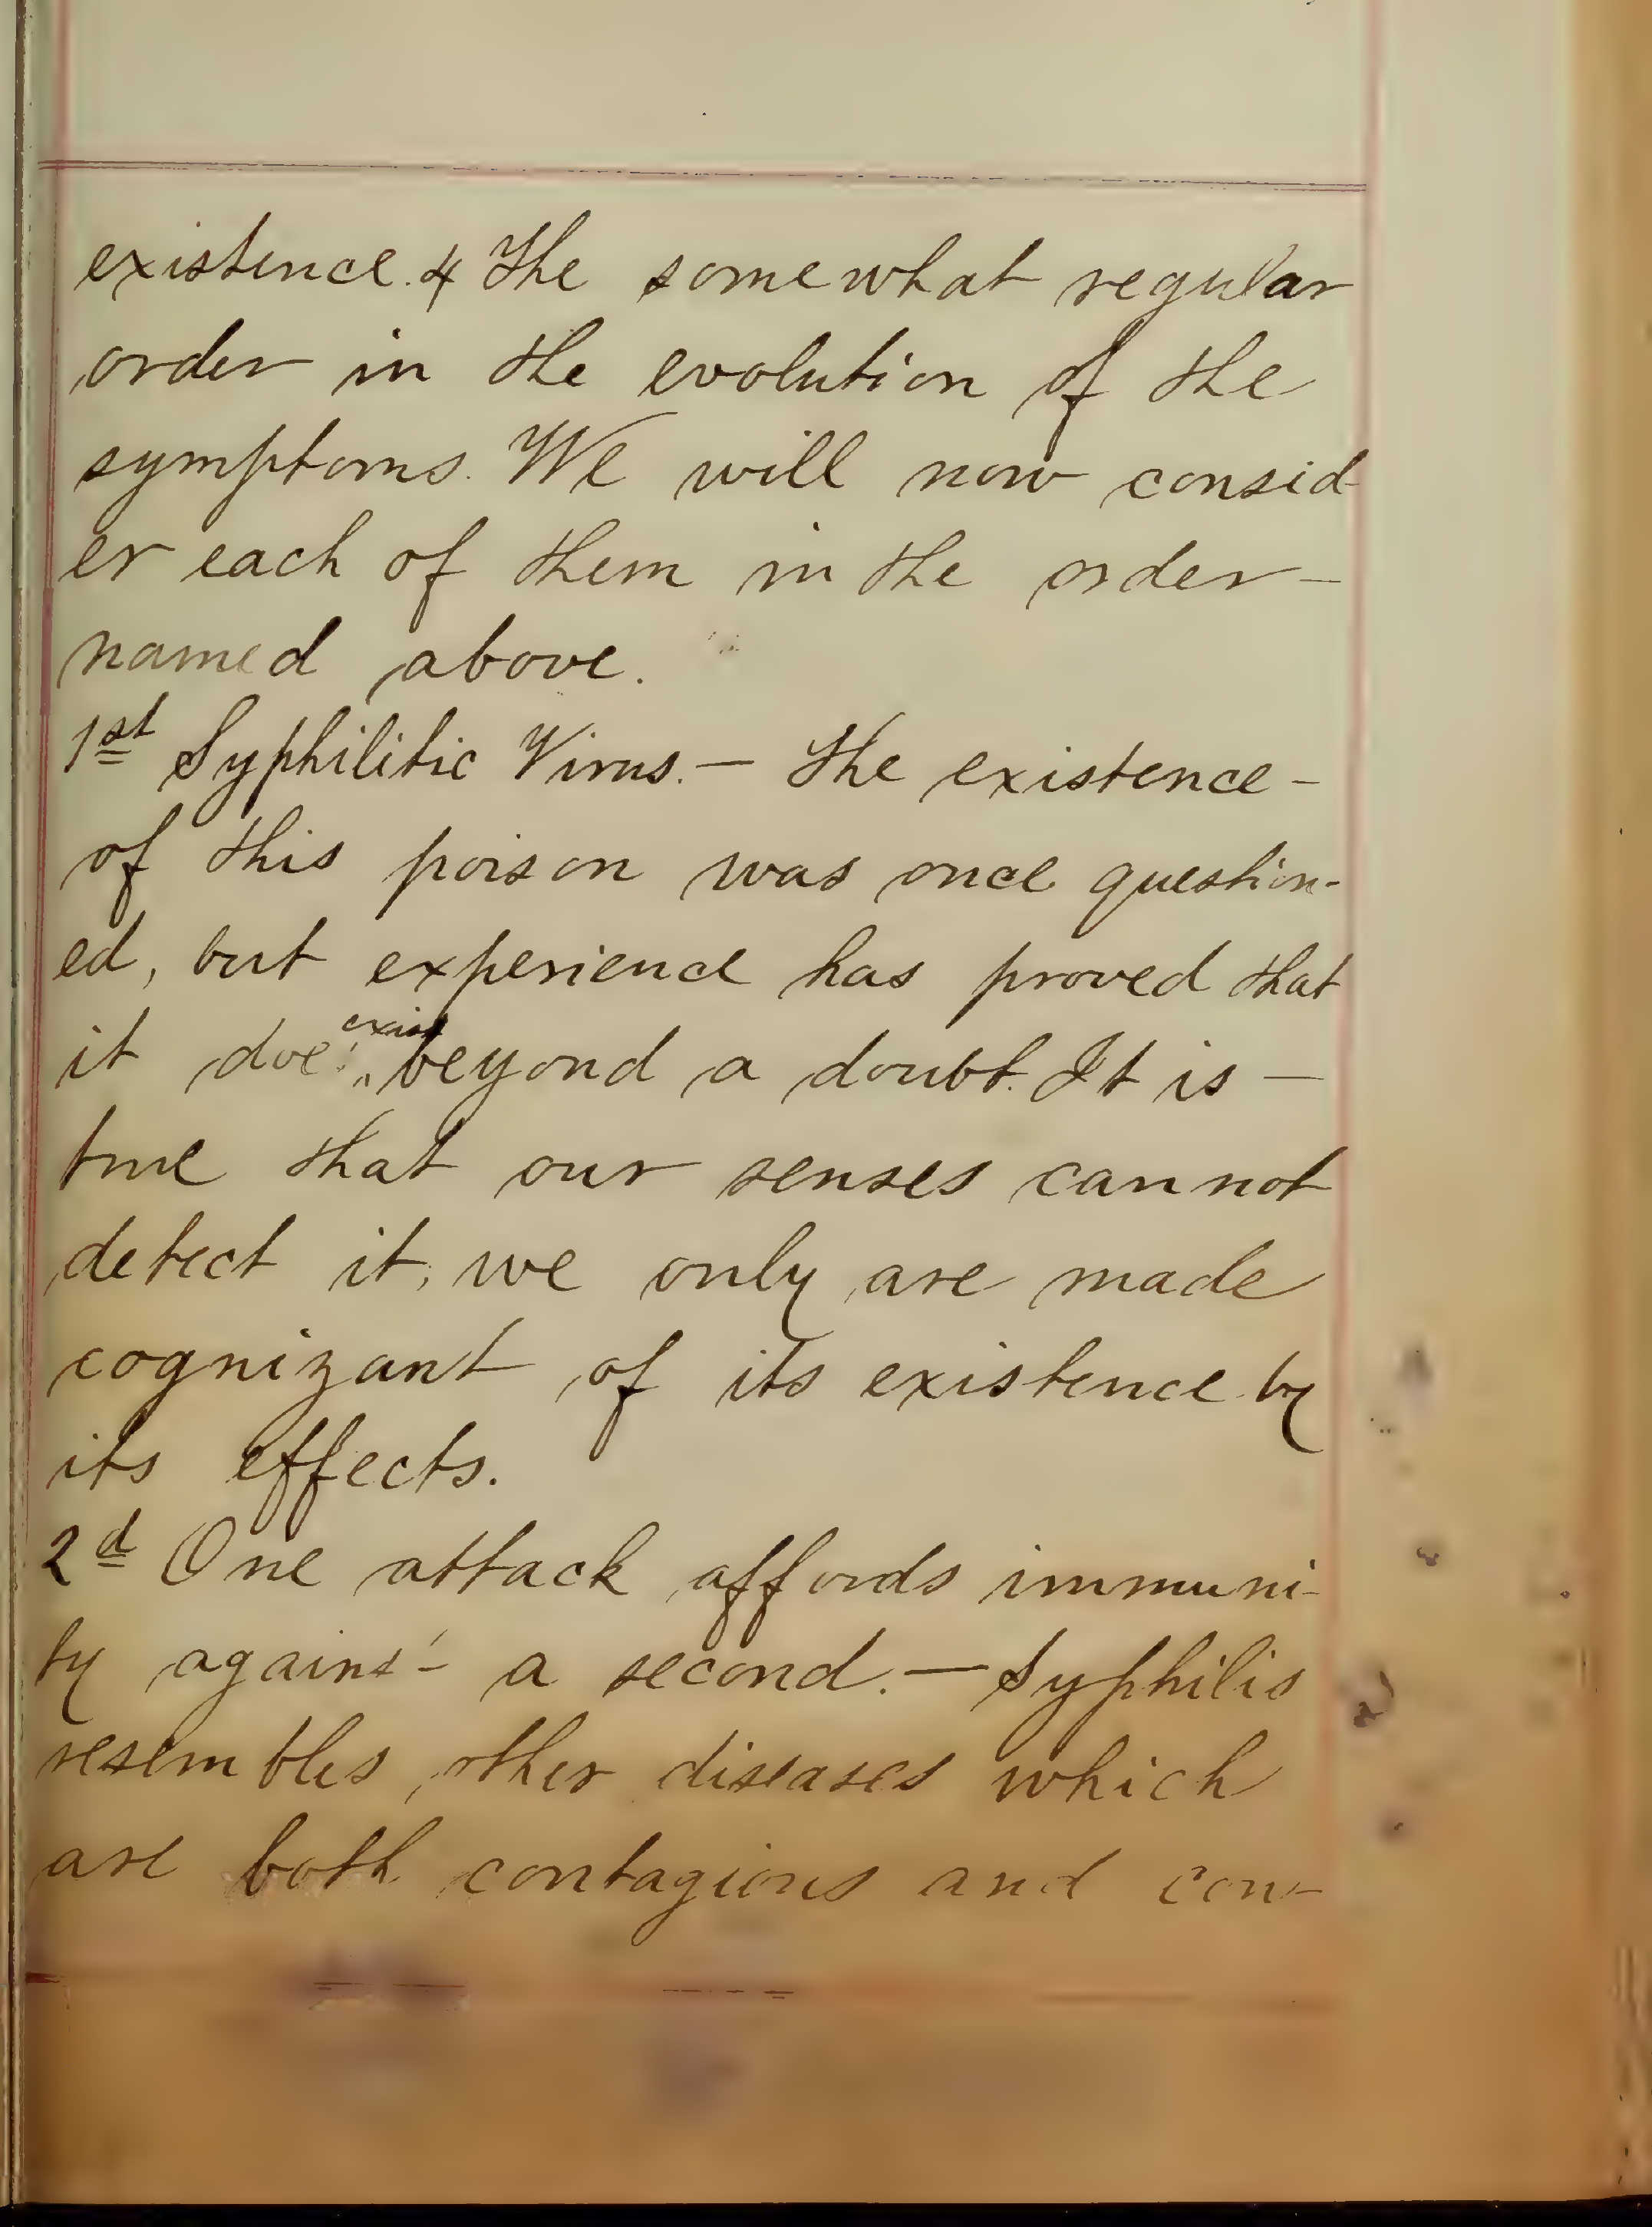 existence. 4 The somewhat regular
order in the evolution of the
symptoms. We will now consid-
er each of them in the order –
named above.
1st Syphilitic Virus. – The existence –
of this poison was once question-
ed, but experience has proved that
it does ^exist beyond a doubt. It is –
true that our senses cannot
detect it, we only are made
cognizant of its existence by
its effects.
2d One attack affords immuni-
ty against – a second. – Syphilis
resembles other diseases which
are both contagious and con-